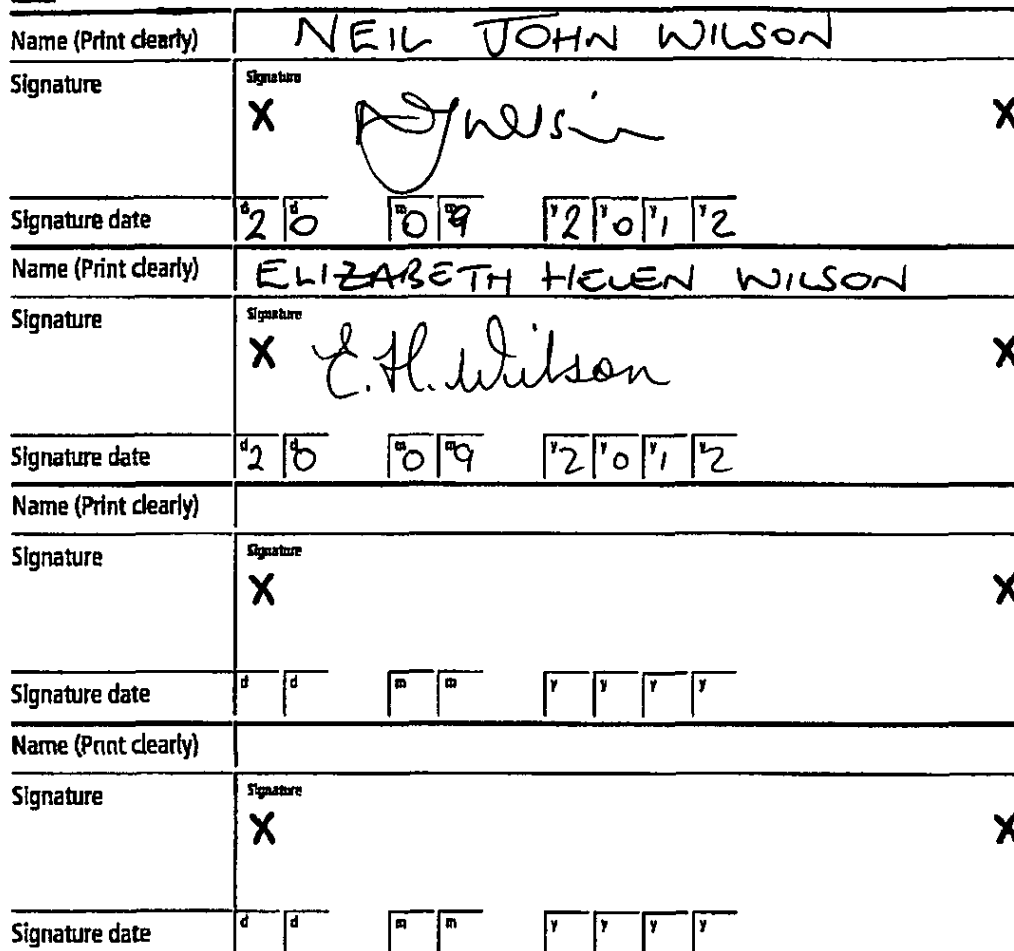 Name (Print clearly) NEIL JOHN WILSON
Signature Signature
X X
Signature date d2 d0 m0 m9 y2 y0 y1 y2
Name (Print clearly) ELIZABETH HELEN WILSON
Signature Signature
X E.H. Wilson X
Signature date d2 d0 m0 m9 y2 y0 y1 y2
Name (Print clearly)
Signature Signature
X X
Signature date d d m m y y y y
Name (Print clearly)
Signature Signature
X X
Signature date d d m m y y y y